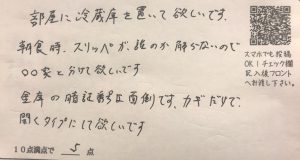 部屋に冷蔵庫を置いて欲しいです。
朝食時、スリッパが、誰のか解らないので
〇〇室と分けて欲しいです
金庫の暗証番号は面倒です、カギだけで、
開くタイプにして欲しいです
10点満点で 5 点
スマホでも投稿
OK！チェック欄
記入後フロント
へお渡し下さい。